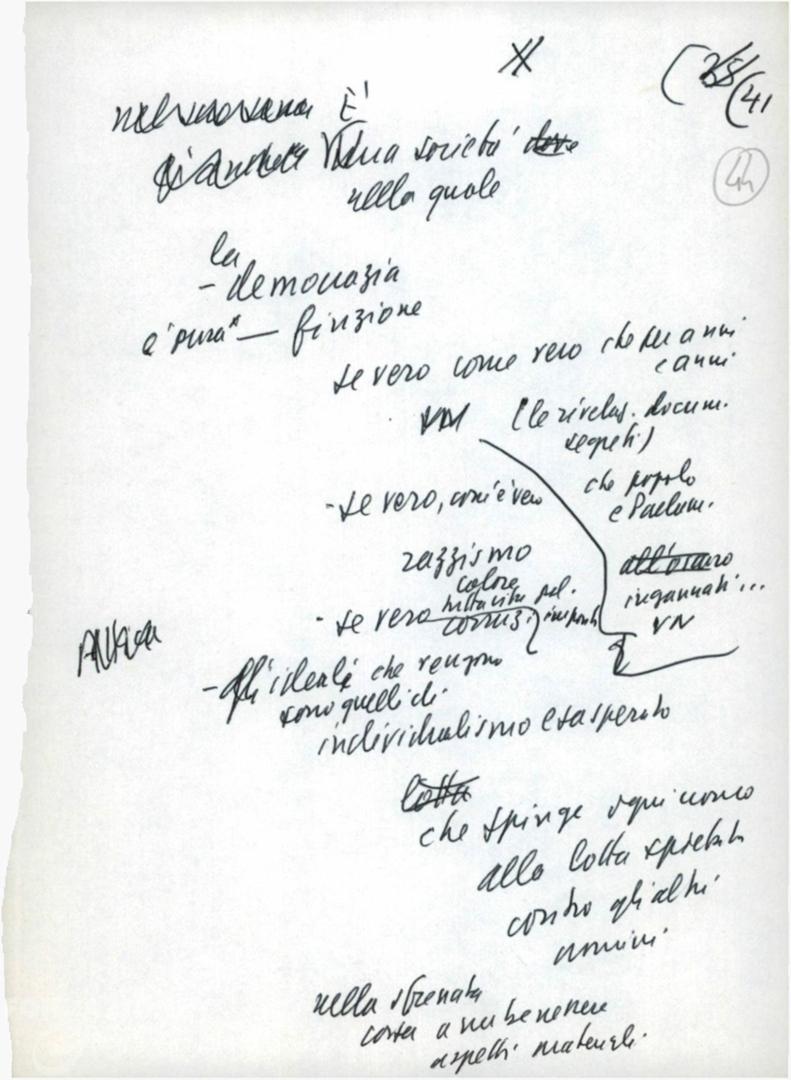 (41
44
È
una società dove
nella quale
la
- democrazia
è pura — finzione
se vero come vero che per anni
e anni
VN (le rivelaz. docum.
segreti)
che popolo
e Parlam.
all'oscuro
ingannati...
VN
- se vero, com'è vero
razzismo
colore
- se vero
corruz.
- gli ideali che vengono
sono quelli di
individualismo esasperato
lotta
che spinge ogni uomo
alla lotta spietata
contro gli altri
uomini
nella sfrenata
corsa a un benessere
aspetti materiali.